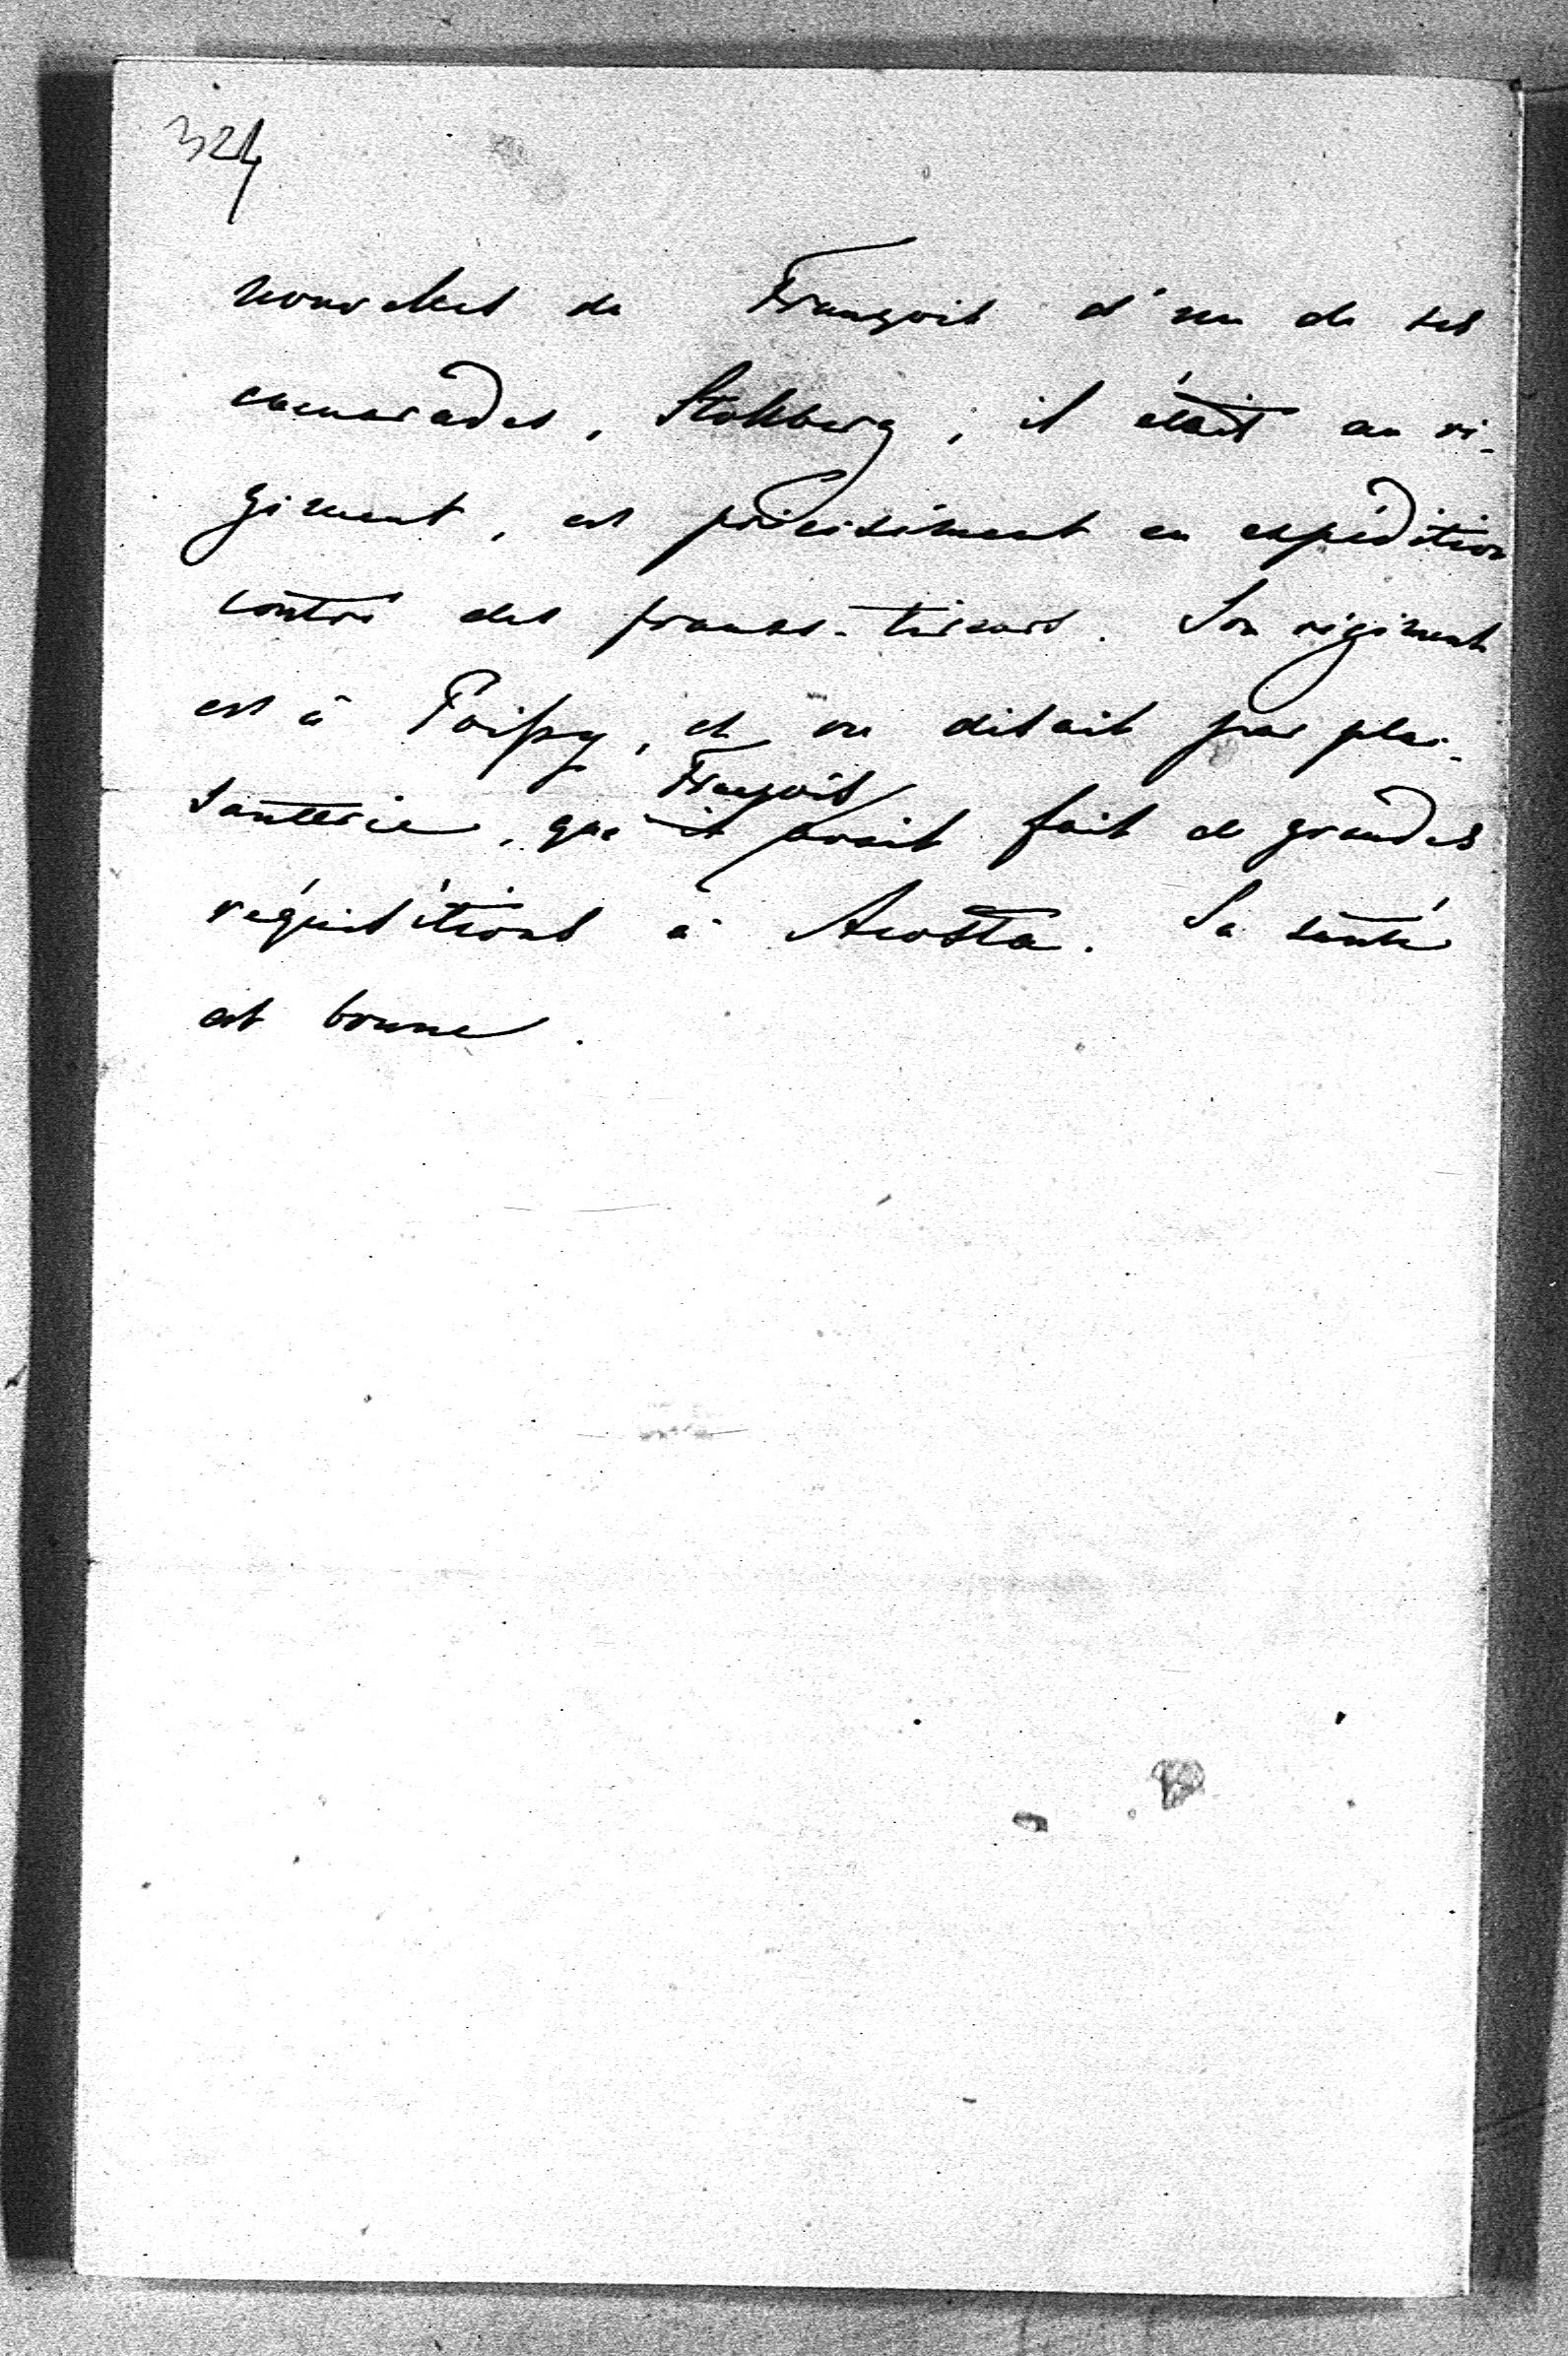 324
nouvelles de François d'un de ses
camarades, Stollberg, il était au ré-
giment, est précisément en expédition
contre des francs-tireurs. Son régiment
est à Poissy, et on disait par plai-
santerie, que François avait fait de grandes
réquisitions à Acosta. Sa santé
est bonne.